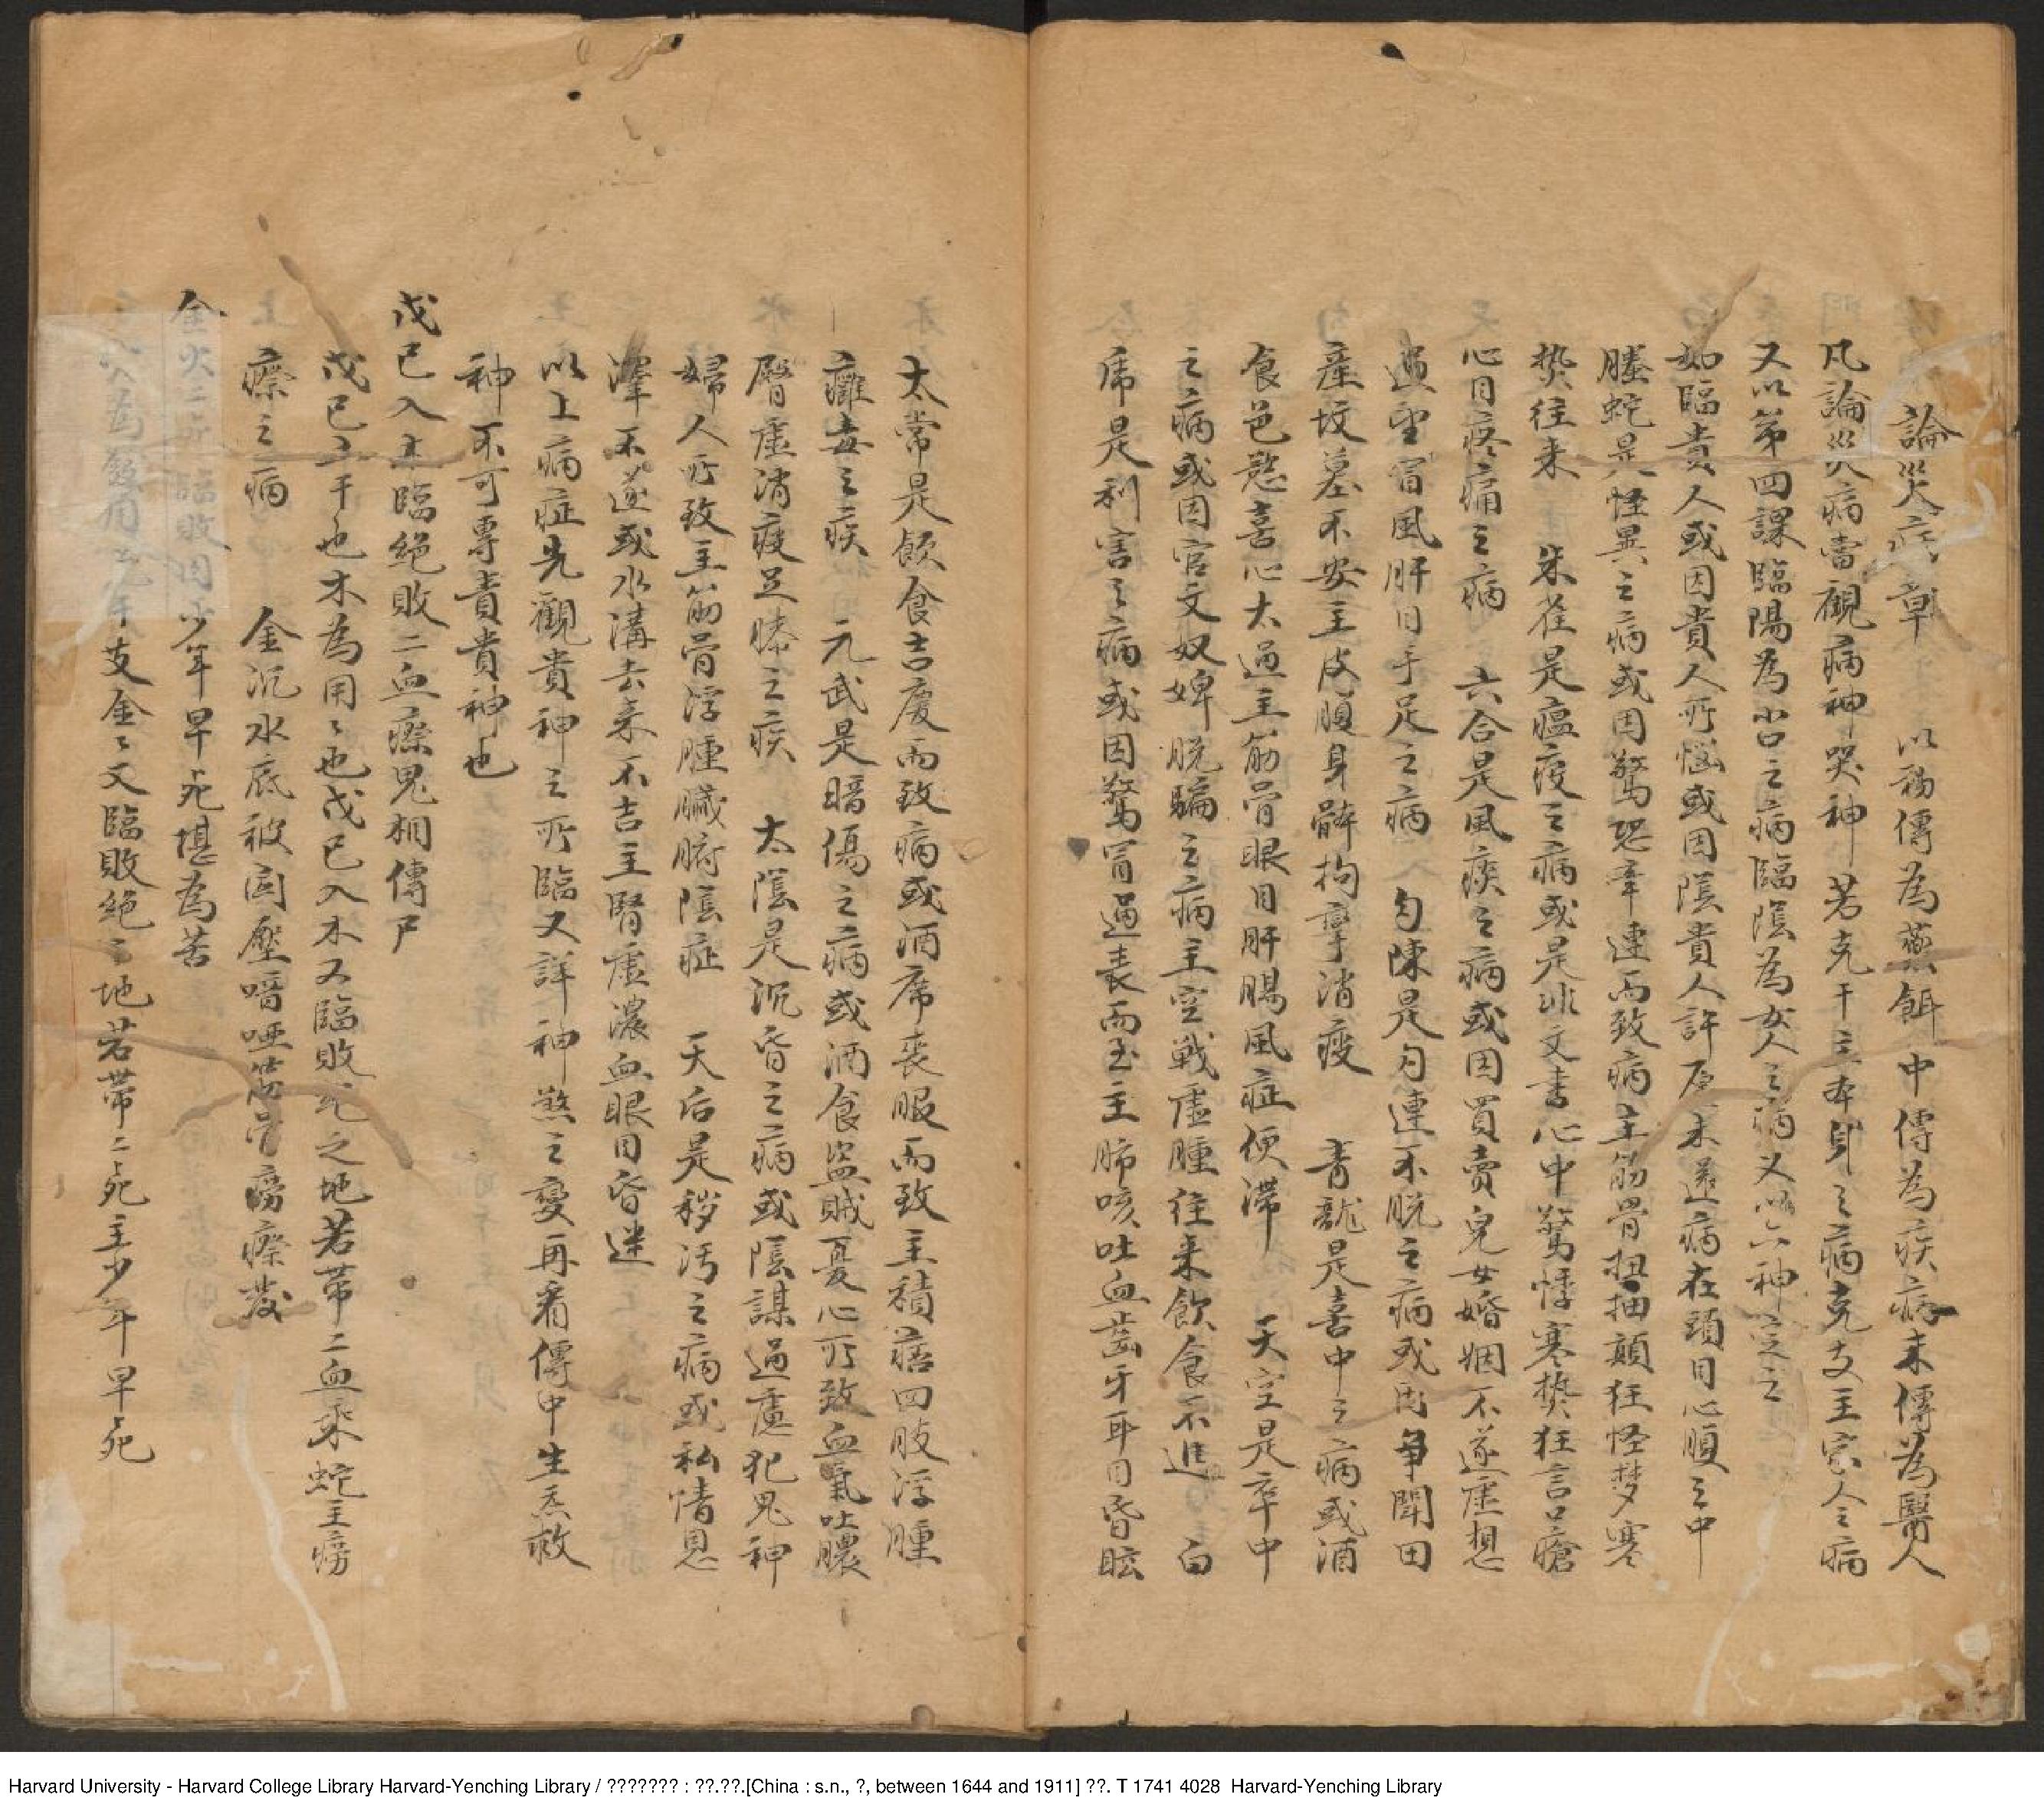 論災病章 以初傳為藥餌中傳為疾病末傳為醫人
凡論災病當觀病神哭神 若克干主本身之病克支主家人之病
又以第四課臨陽為占之病臨陰為女人之病又以六神定之
如臨貴人或因貴人所惱或因陰貴人許原未還病在頭目心順之中
螣蛇是怪異之病或因驚恐牽連而致病主筋骨扭抽顛狂怪梦寒
㷍往来 朱雀是瘟疫之病或是非文書心中驚悸寒㷍狂言口瘡
心目疼痛之病 六合是風疾之病或因買賣兒女婚姻不遂虛想
過望冒風肝目手足之病 勾陳是勾連不脱之病或因爭鬪田
產坟墓不安主皮順身體拘攣消瘦 青龍是喜中之病或酒
食色慾喜心太過主筋骨眼目肝腸風症便滯 天空是卒中
之病或因官文奴婢脱騙之病主空戰虛腫往来飲食不進 白
虎是利害之病或因驚冒過表而玉主肺咳吐血齒牙耳目昏眩
太常是飲食吉慶而致病或酒席丧服而致主積痞四肢浮腫
癰毒之疾 元武是暗傷之病或酒食盜賊憂心所致血氣吐膿
腎虛消瘦足膝之疾 太陰是沉昏之病或陰謀過慮犯鬼神
婦人所致主筋骨浮腫臟腑陰症 天后是穢污之病或私情恩
澤不遂或水溝去来不吉主腎虛濃血眼目昏迷
以上病症先觀貴神之所臨又詳神煞之變再看傳中生炁救
神不可專責貴神也
戊已入木臨絕敗二血瘵鬼相傳尸
戊已土干也木為用々也戊已入木又臨敗絕之地若帶二血乘蛇主癆
瘵之病 金沉水底被囚壓喑啞筋骨癆瘵發
金火二干臨敗因少年早死堪為苦
火為發用克干支金々又臨敗絕之地若帶二死主少年早死
Harvard University - Harvard College Library Harvard-Yenching Library / ??????? : ??.??.[China : s.n., ?, between 1644 and 1911] ??. T 1741 4028 Harvard-Yenching Library